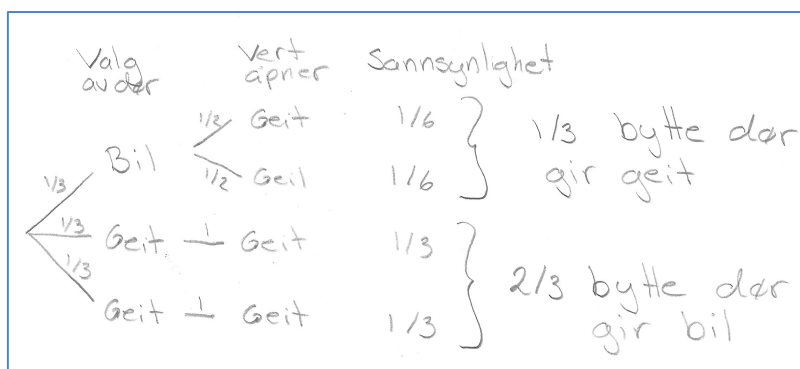 Valg av dør
Vert åpner
Sannsynlighet
1/3
Bil
1/2
Geit
1/6
1/2
Geil
1/6
1/3 bytte dør
gir geit
1/3
Geit
1
Geit
1/3
1/3
Geit
1
Geit
1/3
2/3 bytte dør
gir bil